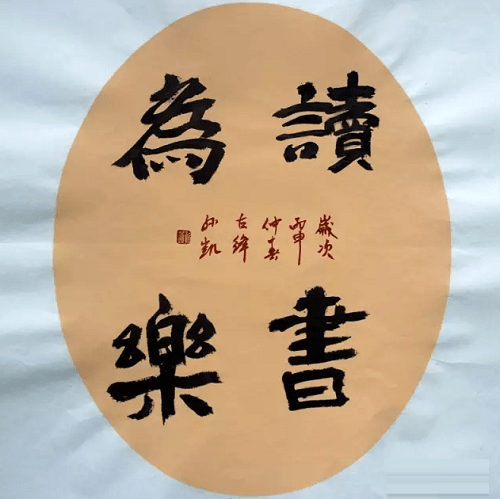 讀書
為樂
歲次
丙申
仲春
古絳
孫凱